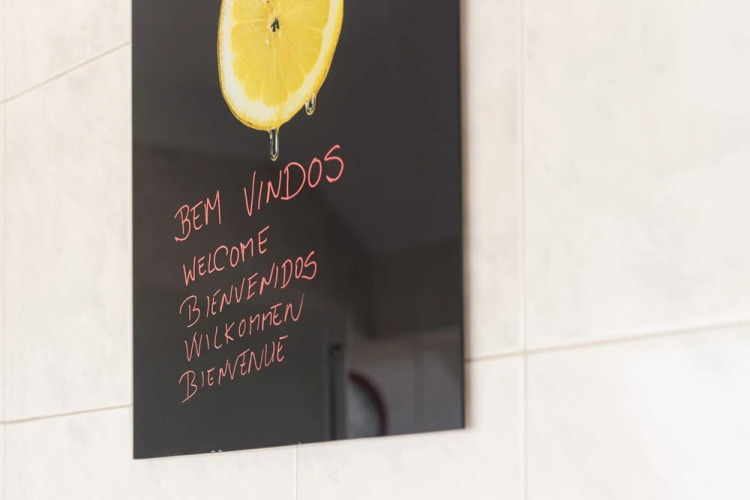 BEM VINDOS
WELCOME
BIENVENIDOS
WILKOMMEN
BIENVENUE